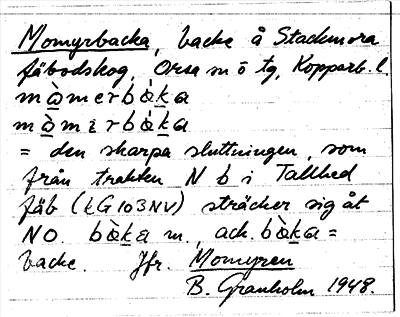 Momyrbacka, backe å Stackmora
fäbodskog, Orsa sn ö tg, Kopparb. l.
mò̠merbὰka
mò̠mɩrbὰka
= den skarpa sluttningen, som
från trakten N b i Tallhed
fäb (LG103NV) sträcker sig åt
NO. bὰka m., ack. bὰka =
backe. Jfr. Momyren
B. Granholm 1948.